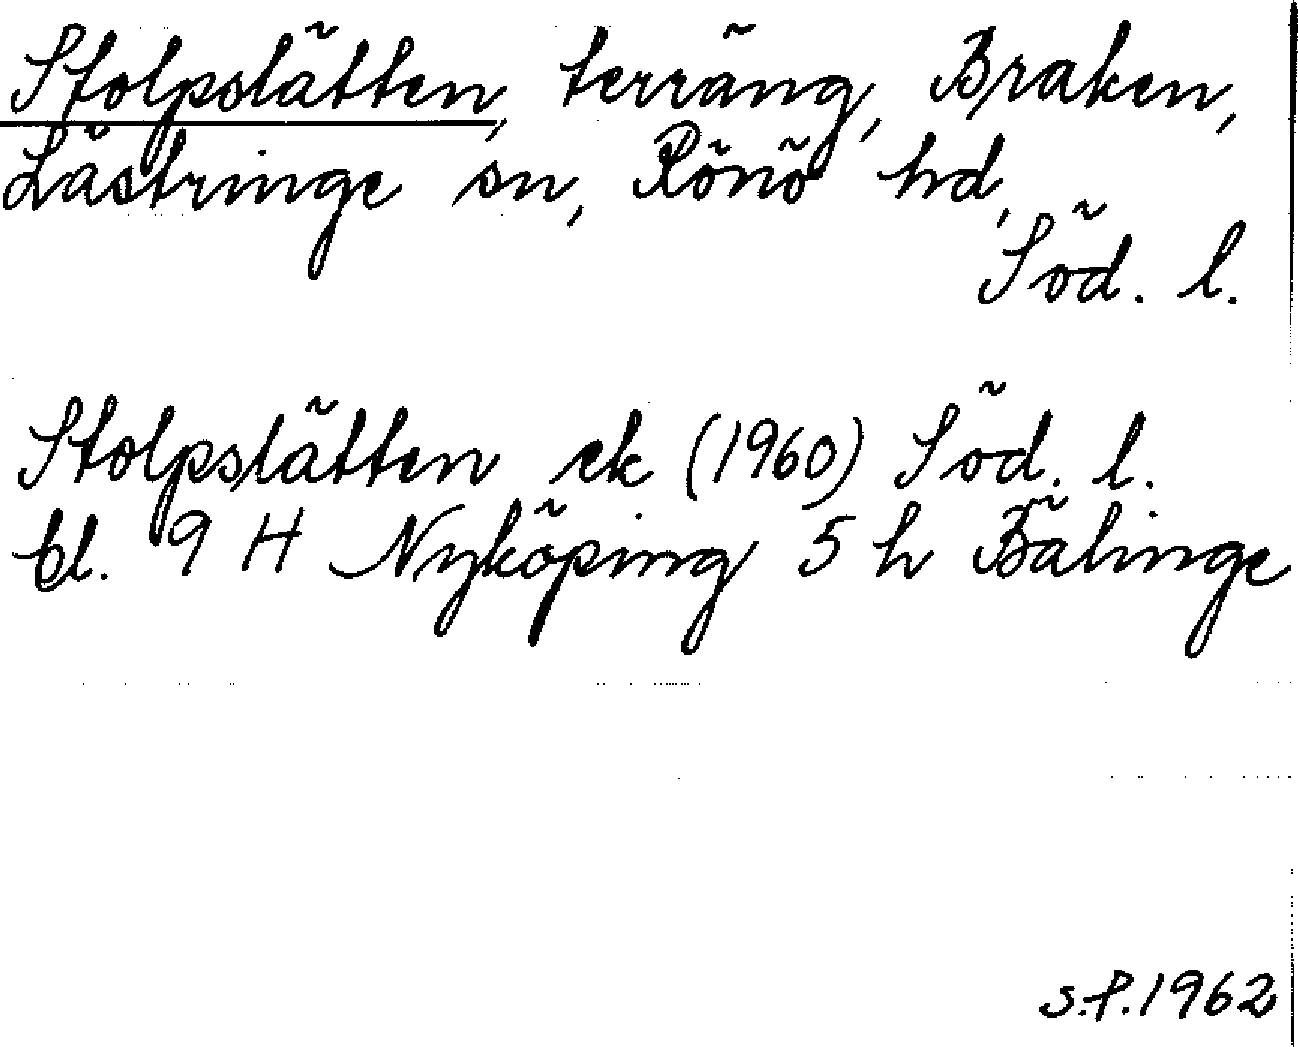 Stolpslätten, terräng, Braken,
Lästringe sn, Rönö hd,
Söd. l.
Stolpslätten ek (1960) Söd. l.
bl. 9 H Nyköping 5 h Bälinge
s.f. 1962